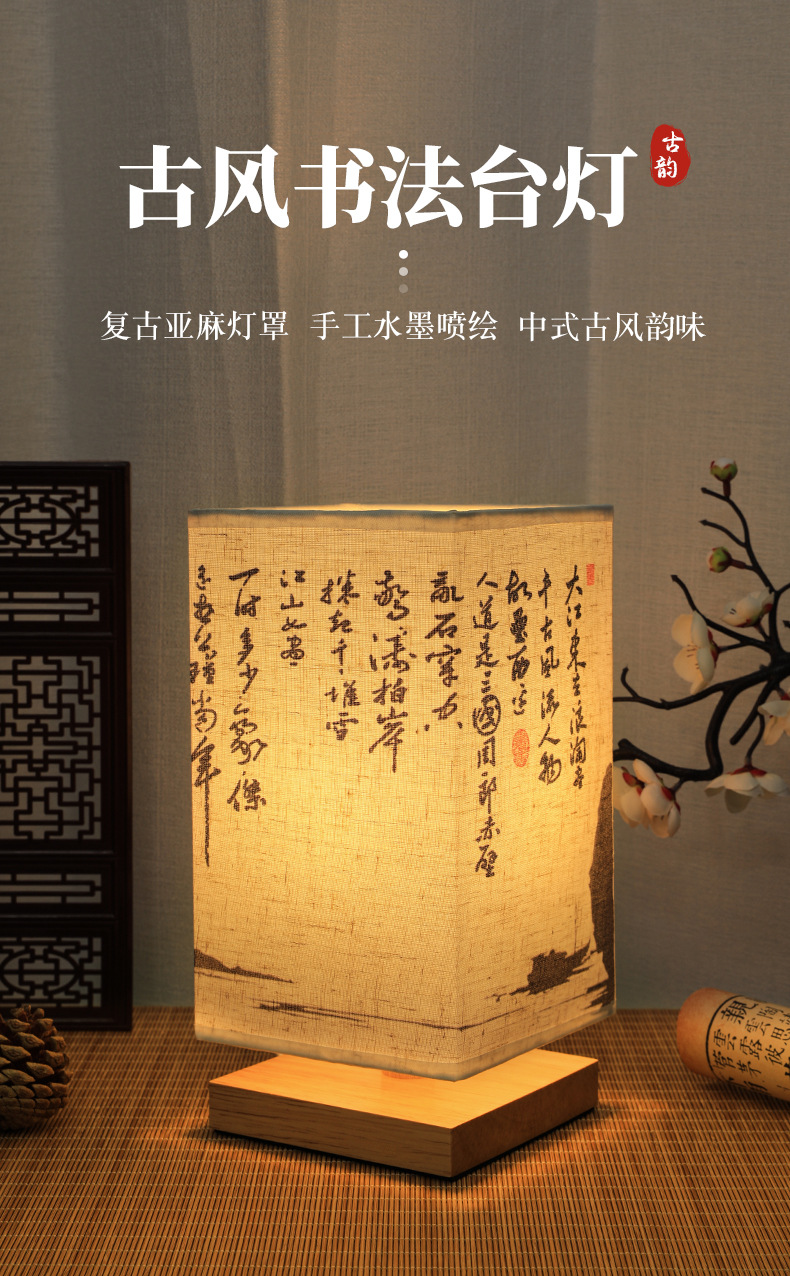 古风书法台灯
古韵
复古亚麻灯罩 手工水墨喷绘 中式古风韵味
大江東去浪淘盡
千古風流人物
故壘西邊
人道是三國周郎赤壁
亂石穿空
驚濤拍岸
捲起千堆雪
江山如畫
一時多少豪傑
遙想公瑾當年